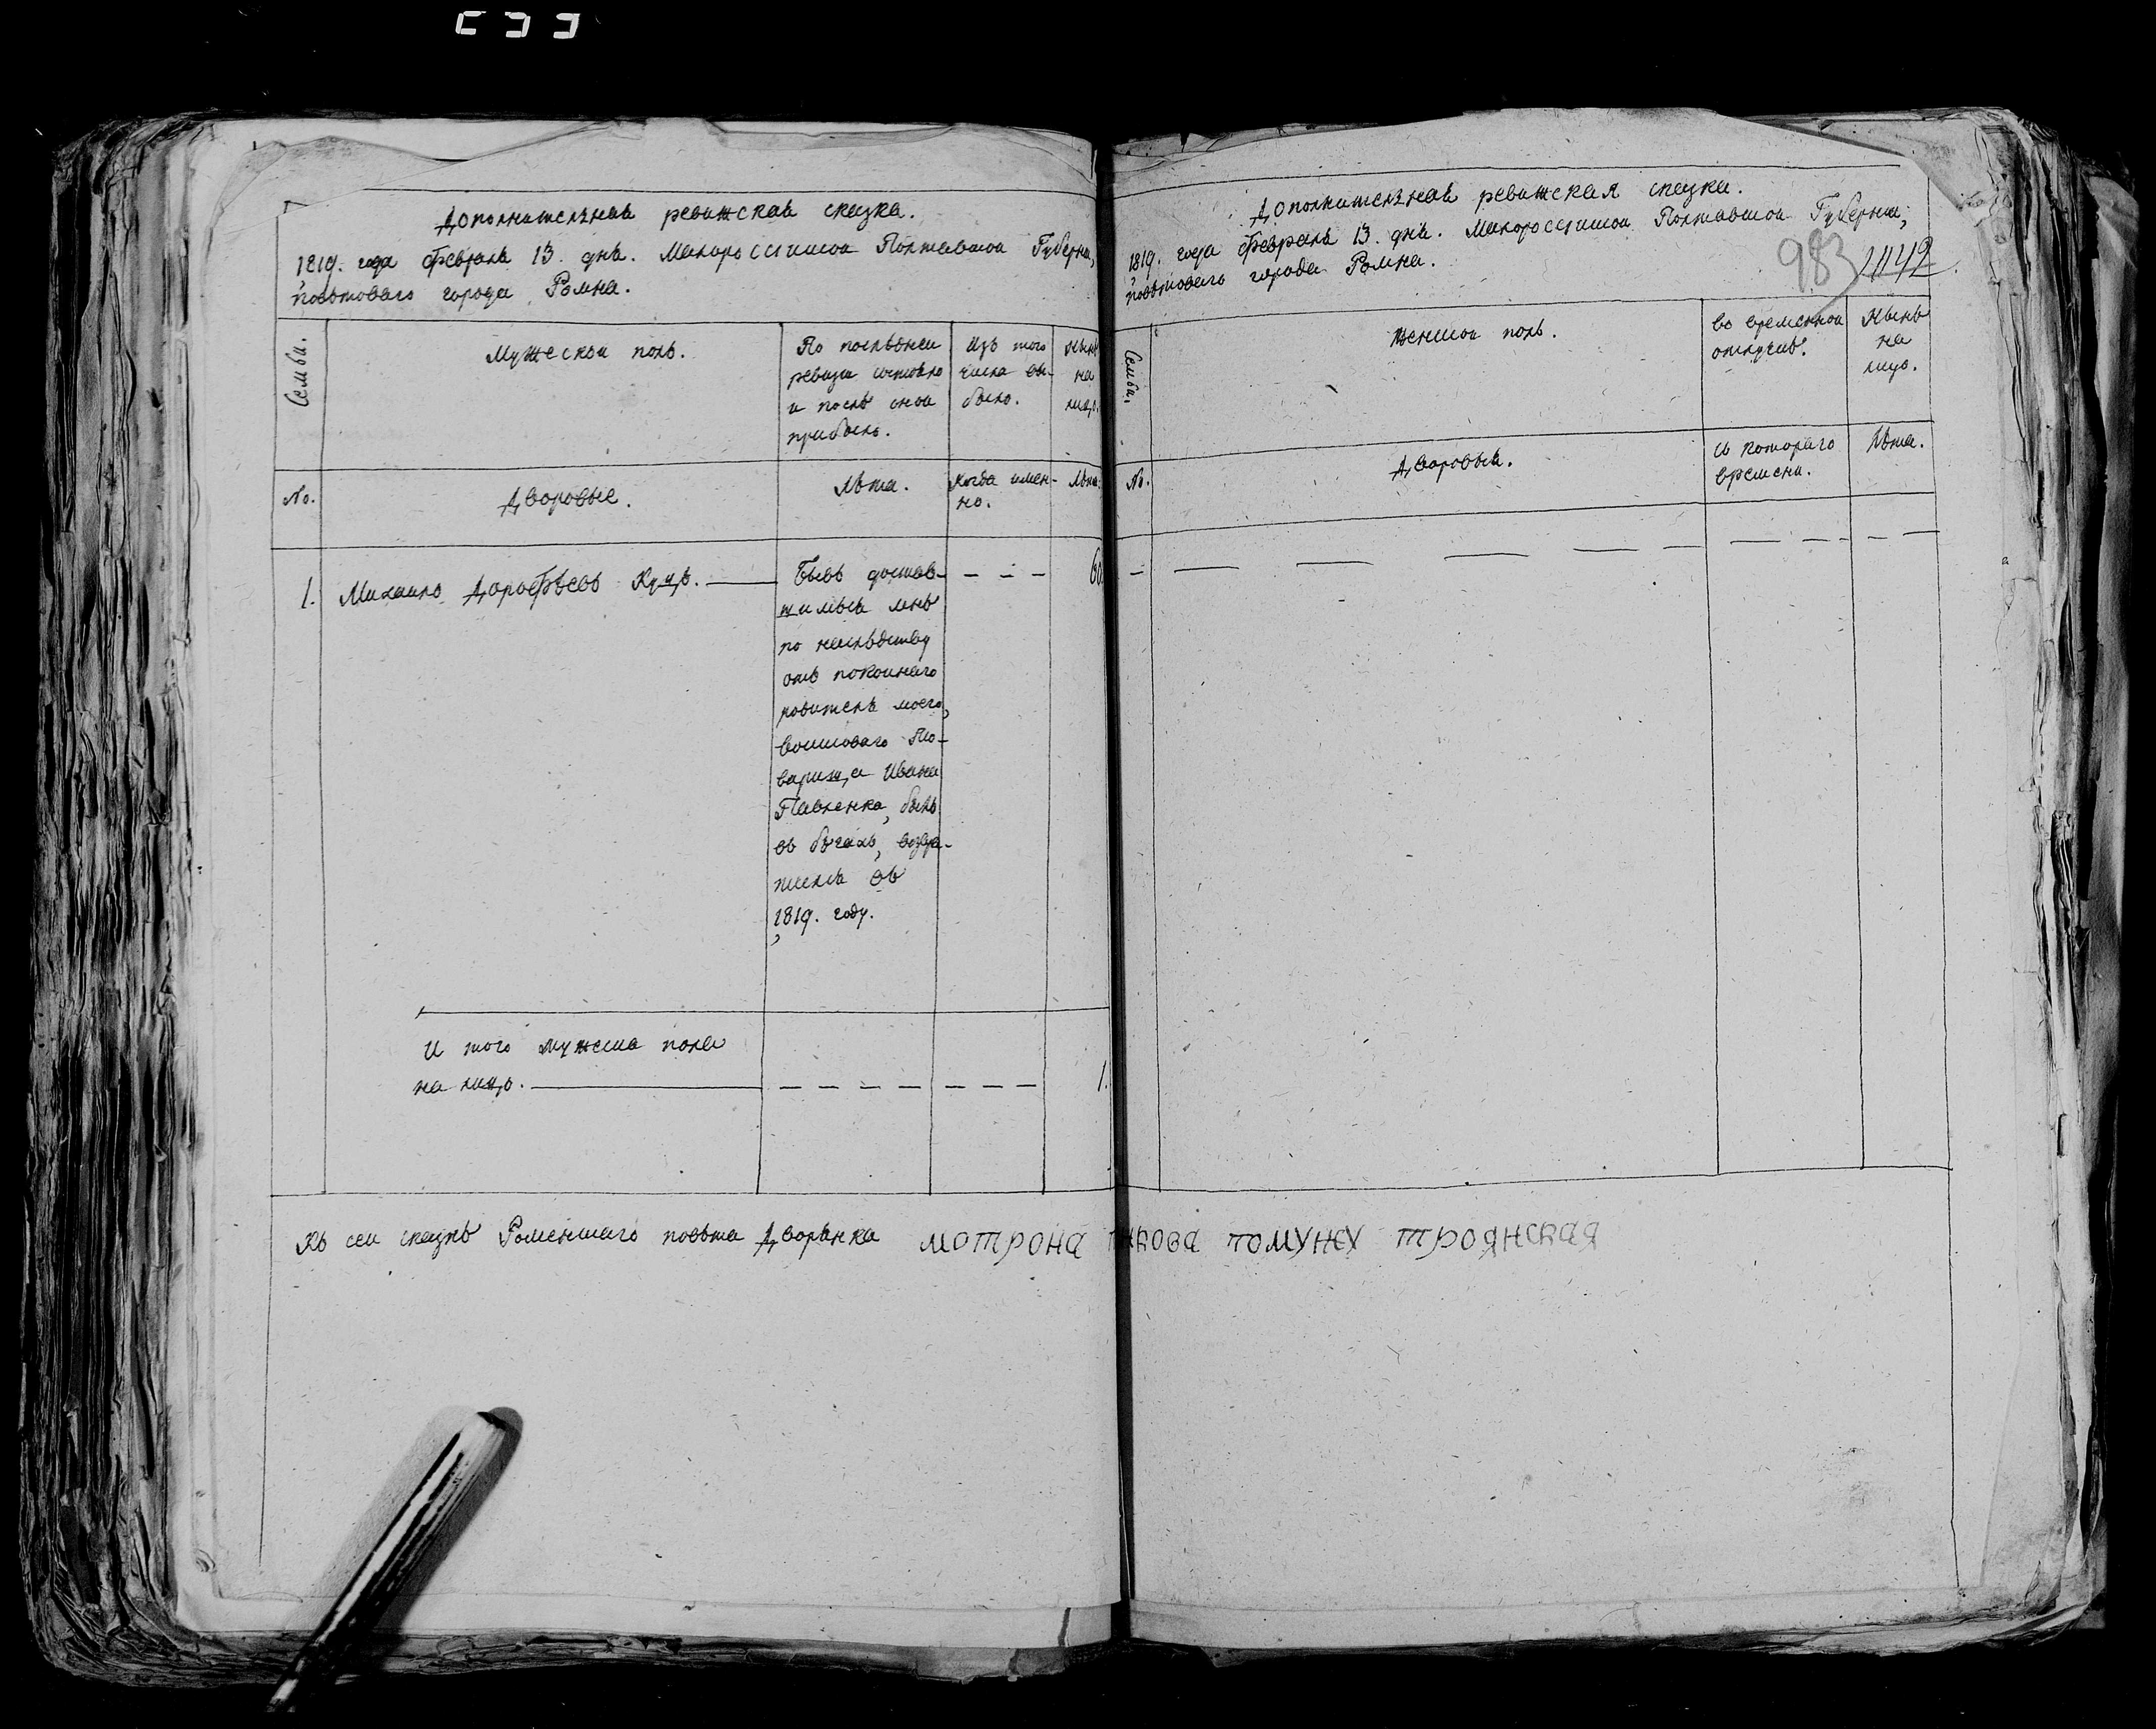 Дополнительная ревижская сказка.
1819. года Февраля 13. дня. Малороссiйской Полтавской Губернiи,
повѣтоваго города Ромна.
Семьи.
Мужескои полъ.
По послѣднеи
ревизiи состояло
и послѣ онои
прибыло.
Изъ того
числа вы-
было.
Нынѣ
на
лицо.
No.
Дворовые.
Лѣта.
Когда имен-
но.
Лѣта.
1. Михаило Дорофѣевъ Куцъ.
Бывъ достав-
шимься мнѣ
по наслѣдству
отъ покоинаго
родителя моего,
воисковаго То-
варища Ивана
Павленка, былъ
въ бѣгахъ, возвра-
тился въ
1819. году.
60.
И того мужеска пола
на лицо.
1.
Дополнительная ревижская сказка.
1819. года Февраля 13. дня. Малороссiйской Полтавской Губернiи,
повѣтоваго города Ромна.
983
1142
Семьи.
Женской полъ.
во временнои
отлучкѣ.
Нынѣ
на
лицо.
No.
Дворовыя.
съ котораго
времени.
Лѣта.
Къ сеи сказкѣ Роменскаго повѣта Дворянка мотрона по мужу трояская